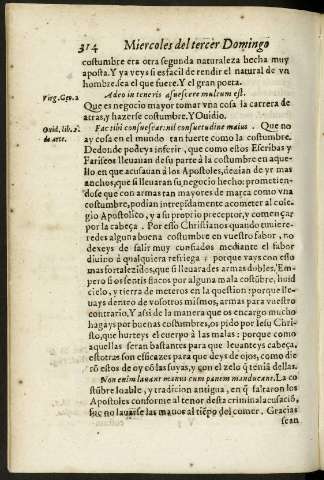 314 Miercoles del tercer Domingo
costumbre era otra segunda naturaleza hecha muy
aposta. Y ya veys si es facil de rendir el natural de vn
hombre, sea el que fuere. Y el gran poeta.
Virg. Geo. 2
Adeo in teneris assuescere multum est.
Que es negocio mayor tomar vna cosa la carrera de
atras, y hazerse costumbre. Y Ouidio.
Ouid. lib. 2.
de arte.
Fac tibi consuescat: nil consuetudine maius. Que no
ay cosa en el mundo tan fuerte como la costumbre.
De donde podeys inferir, que como estos Escribas y
Fariseos lleuauan de su parte à la costumbre en aque-
llo en que acusauan à los Apostoles, deuian de yr mas
anchos, que si lleuaran su negocio hecho: prometien-
dose que con armas tan mayores de marca como vna
costumbre, podian intrepidamente acometer al cole-
gio Apostolico, y a su proprio preceptor, y començar
por la cabeça. Por esso Christianos quando tuuiere-
redes alguna buena costumbre en vuestro fabor, no
dexeys de salir muy confiados mediante el fabor
diuino à qualquiera refriega: porque vays con esto
mas fortalezidos, que si lleuarades armas dobles. Em-
pero si os sentis flacos por alguna mala costũbre, huid
cielo, y tierra de meteros en la question: porque lle-
uays dentro de vosotros mismos, armas para vuestro
contrario. Y assi de la manera que os encargo mucho
hagays por buenas costumbres, os pido por Iesu Chri-
sto, que hurteys el cuerpo à las malas: porque como
aquellas seran bastantes para que leuanteys cabeça,
estotras son efficazes para que deys de ojos, como die
rõ estos de oy cõ las suyas, y con el zelo q̃ tenià dellas.
Non enim lauant manus cum panem manducant. La co-
stũbre loable, y tradicion antigua, en q̃ faltaron los
Apostoles conforme al tenor desta criminal acusaciõ,
fue no lauarse las manos al tiẽpo del comer. Gracias
sean